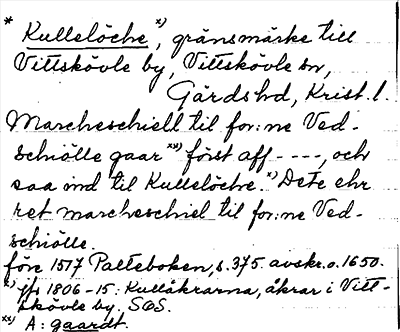 * Kullelöche x), gränsmärke till
Vittskövle by, Vittskövle sn,
Gärds hd, Krist. l.
Marcheschiell til for:ne Ved-
schiölle gaar xx) först aff ----, och
saa ind til Kullelöche. x) Dete ehr
ret marcheschiel til for:ne Ved-
schiölle.
före 1517 Palteboken, s. 375. avskr. o. 1650.
x) jfr 1806-15: Kullåkrarna, åkrar i Vitt-
skövle by, SOS.
xx) A: gaardt.